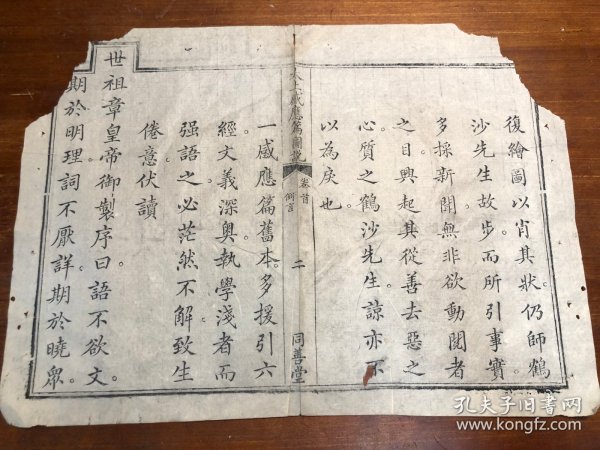 復繪圖以肖其狀仍師鶴
沙先生故步而所引事實
多採新聞無非欲動閱者
之目興起其從善去惡之
心質之鶴沙先生諒亦不
以為戾也
太上感應篇圖說 卷首 例言 二 同善堂
一感應篇舊本多援引六
經文義深奧執學淺者而
强語之必茫然不解致生
倦意伏讀
世祖章皇帝御製序曰語不欲文
期於明理詞不厭詳期於曉眾
孔夫子旧书网
www.kongfz.com